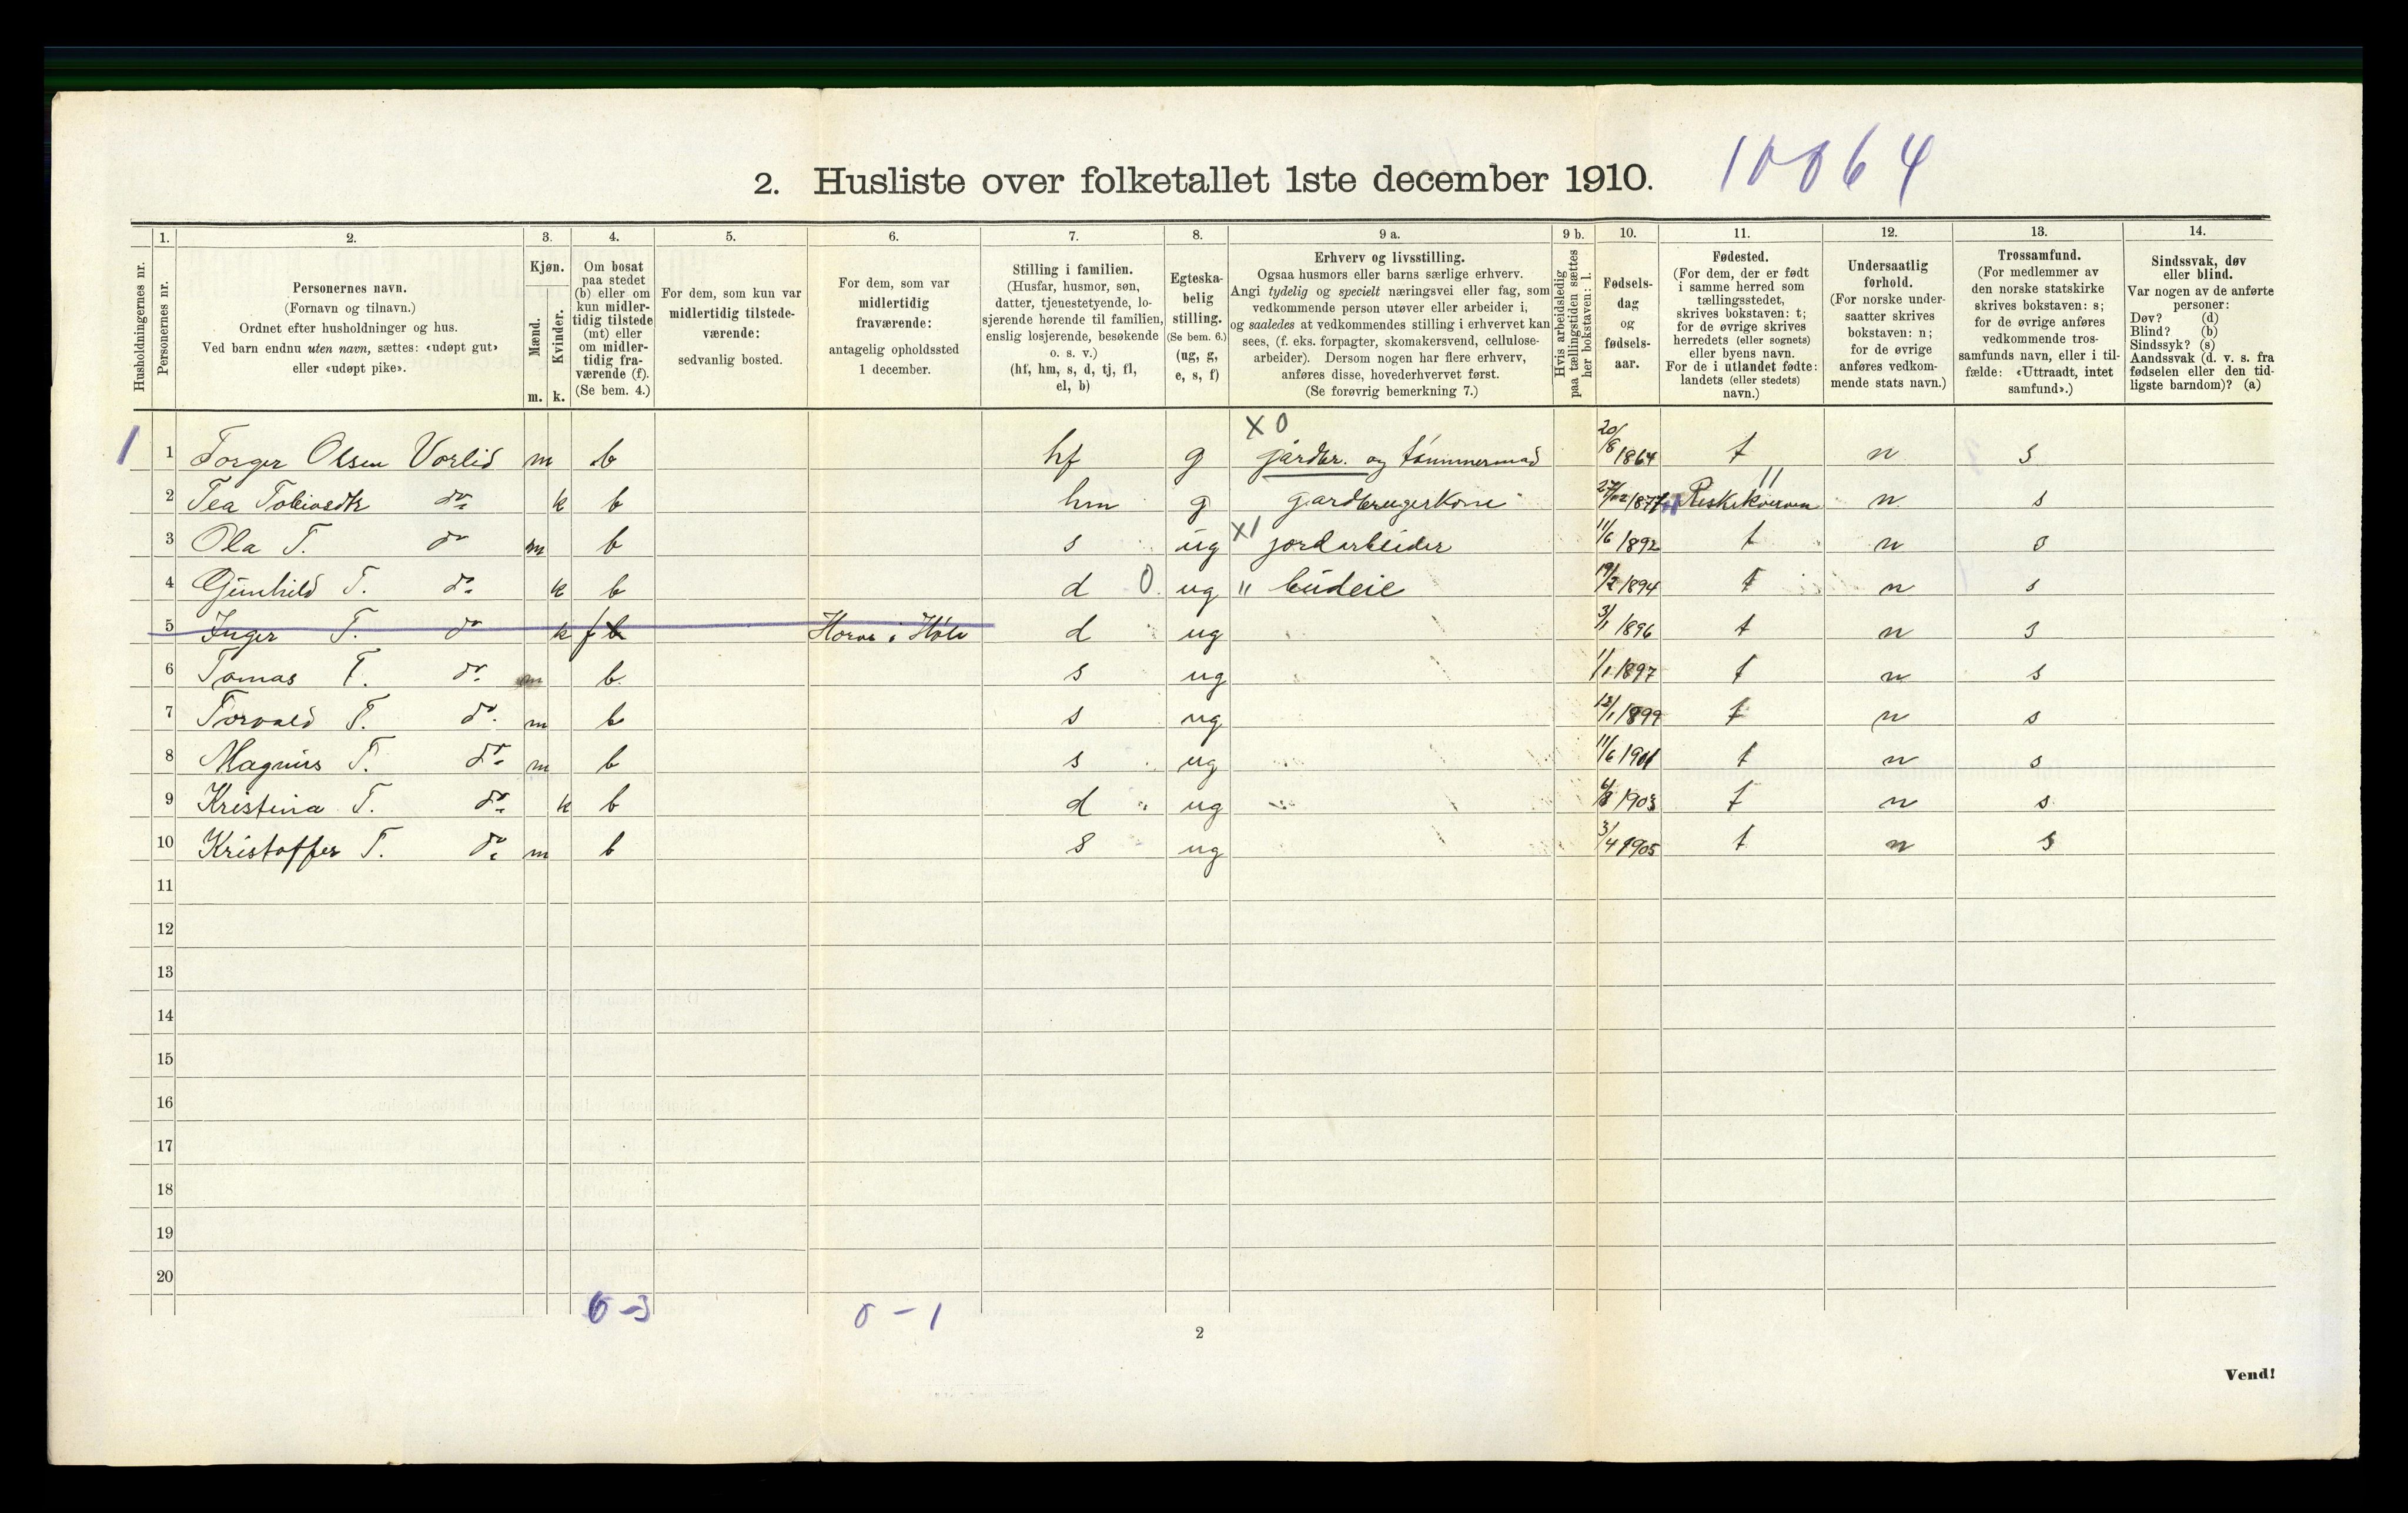 2. Husliste over folketallet 1ste december 1910. 10064
1. 2. 3. 4. 5. 6. 7. 8. 9 a. 9 b. 10. 11. 12. 13. 14.
Husholdningernes nr.
Personernes nr.
Personernes navn.
(Fornavn og tilnavn.)
Ordnet efter husholdninger og hus.
Ved barn endnu uten navn, sættes: «udøpt gut»
eller «udøpt pike».
Kjøn.
Mænd.
Kvinder.
m. k.
Om bosat
paa stedet
(b) eller om
kun midler-
tidig tilstede
(mt) eller
om midler-
tidig fra-
værende (f).
(Se bem. 4.)
For dem, som kun var
midlertidig tilstede-
værende:
sedvanlig bosted.
For dem, som var
midlertidig
fraværende:
antagelig opholdssted
1 december.
Stilling i familien.
(Husfar, husmor, søn,
datter, tjenestetyende, lo-
sjerende hørende til familien,
enslig losjerende, besøkende
o. s. v.)
(hf, hm, s, d, tj, fl,
el, b)
Egteska-
belig
stilling.
(Se bem. 6.)
(ug, g,
e, s, f)
Erhverv og livsstilling.
Ogsaa husmors eller barns særlige erhverv.
Angi tydelig og specielt næringsvei eller fag, som
vedkommende person utøver eller arbeider i,
og saaledes at vedkommendes stilling i erhvervet kan
sees, (f. eks. forpagter, skomakersvend, cellulose-
arbeider). Dersom nogen har flere erhverv,
anføres disse, hovederhvervet først.
(Se forøvrig bemerkning 7.)
Hvis arbeidsledig
paa tællingstiden sættes
her bokstaven: l.
Fødsels-
dag
og
fødsels-
aar.
Fødested.
(For dem, der er født
i samme herred som
tællingsstedet,
skrives bokstaven: t;
for de øvrige skrives
herredets (eller sognets)
eller byens navn.
For de i utlandet fødte:
landets (eller stedets)
navn.)
Undersaatlig
forhold.
(For norske under-
saatter skrives
bokstaven: n;
for de øvrige
anføres vedkom-
mende stats navn.)
Trossamfund.
(For medlemmer av
den norske statskirke
skrives bokstaven: s;
for de øvrige anføres
vedkommende tros-
samfunds navn, eller i til-
fælde: «Uttraadt, intet
samfund».)
Sindssvak, døv
eller blind.
Var nogen av de anførte
personer:
Døv? (d)
Blind? (b)
Sindssyk? (s)
Aandssvak (d. v. s. fra
fødselen eller den tid-
ligste barndom)? (a)
X 0
1 1 Torger Olsen Vorlid m b hf g gårdbr. og tømmermad 20/8 1864 t n s
11
2 Tea Tobiasdtr do k b hm g gardbrugerkone 27/12 1877 n s
3 Ola T. do m b s ug X1 jordarbeider 11/6 1892 t n s
4 Gunhild T. do k b d 0 ug " budeie 19/2 1894 t n s
5 Inger T. do k f b i Høle d ug 3/1 1896 t n s
6 Tomas T. do m b s ug 1/1 1897 t n s
7 Torvald T. do m b s ug 12/1 1899 t n s
8 Magnus T. do m b s ug 11/6 1901 t n s
9 Kristina T. do k b d ug 6/8 1903 t n s
10 Kristoffer T. do m b s ug 3/4 1905 t n s
11
12
13
14
15
16
17
18
19
20
6 - 3 0 - 1
2
Vend!